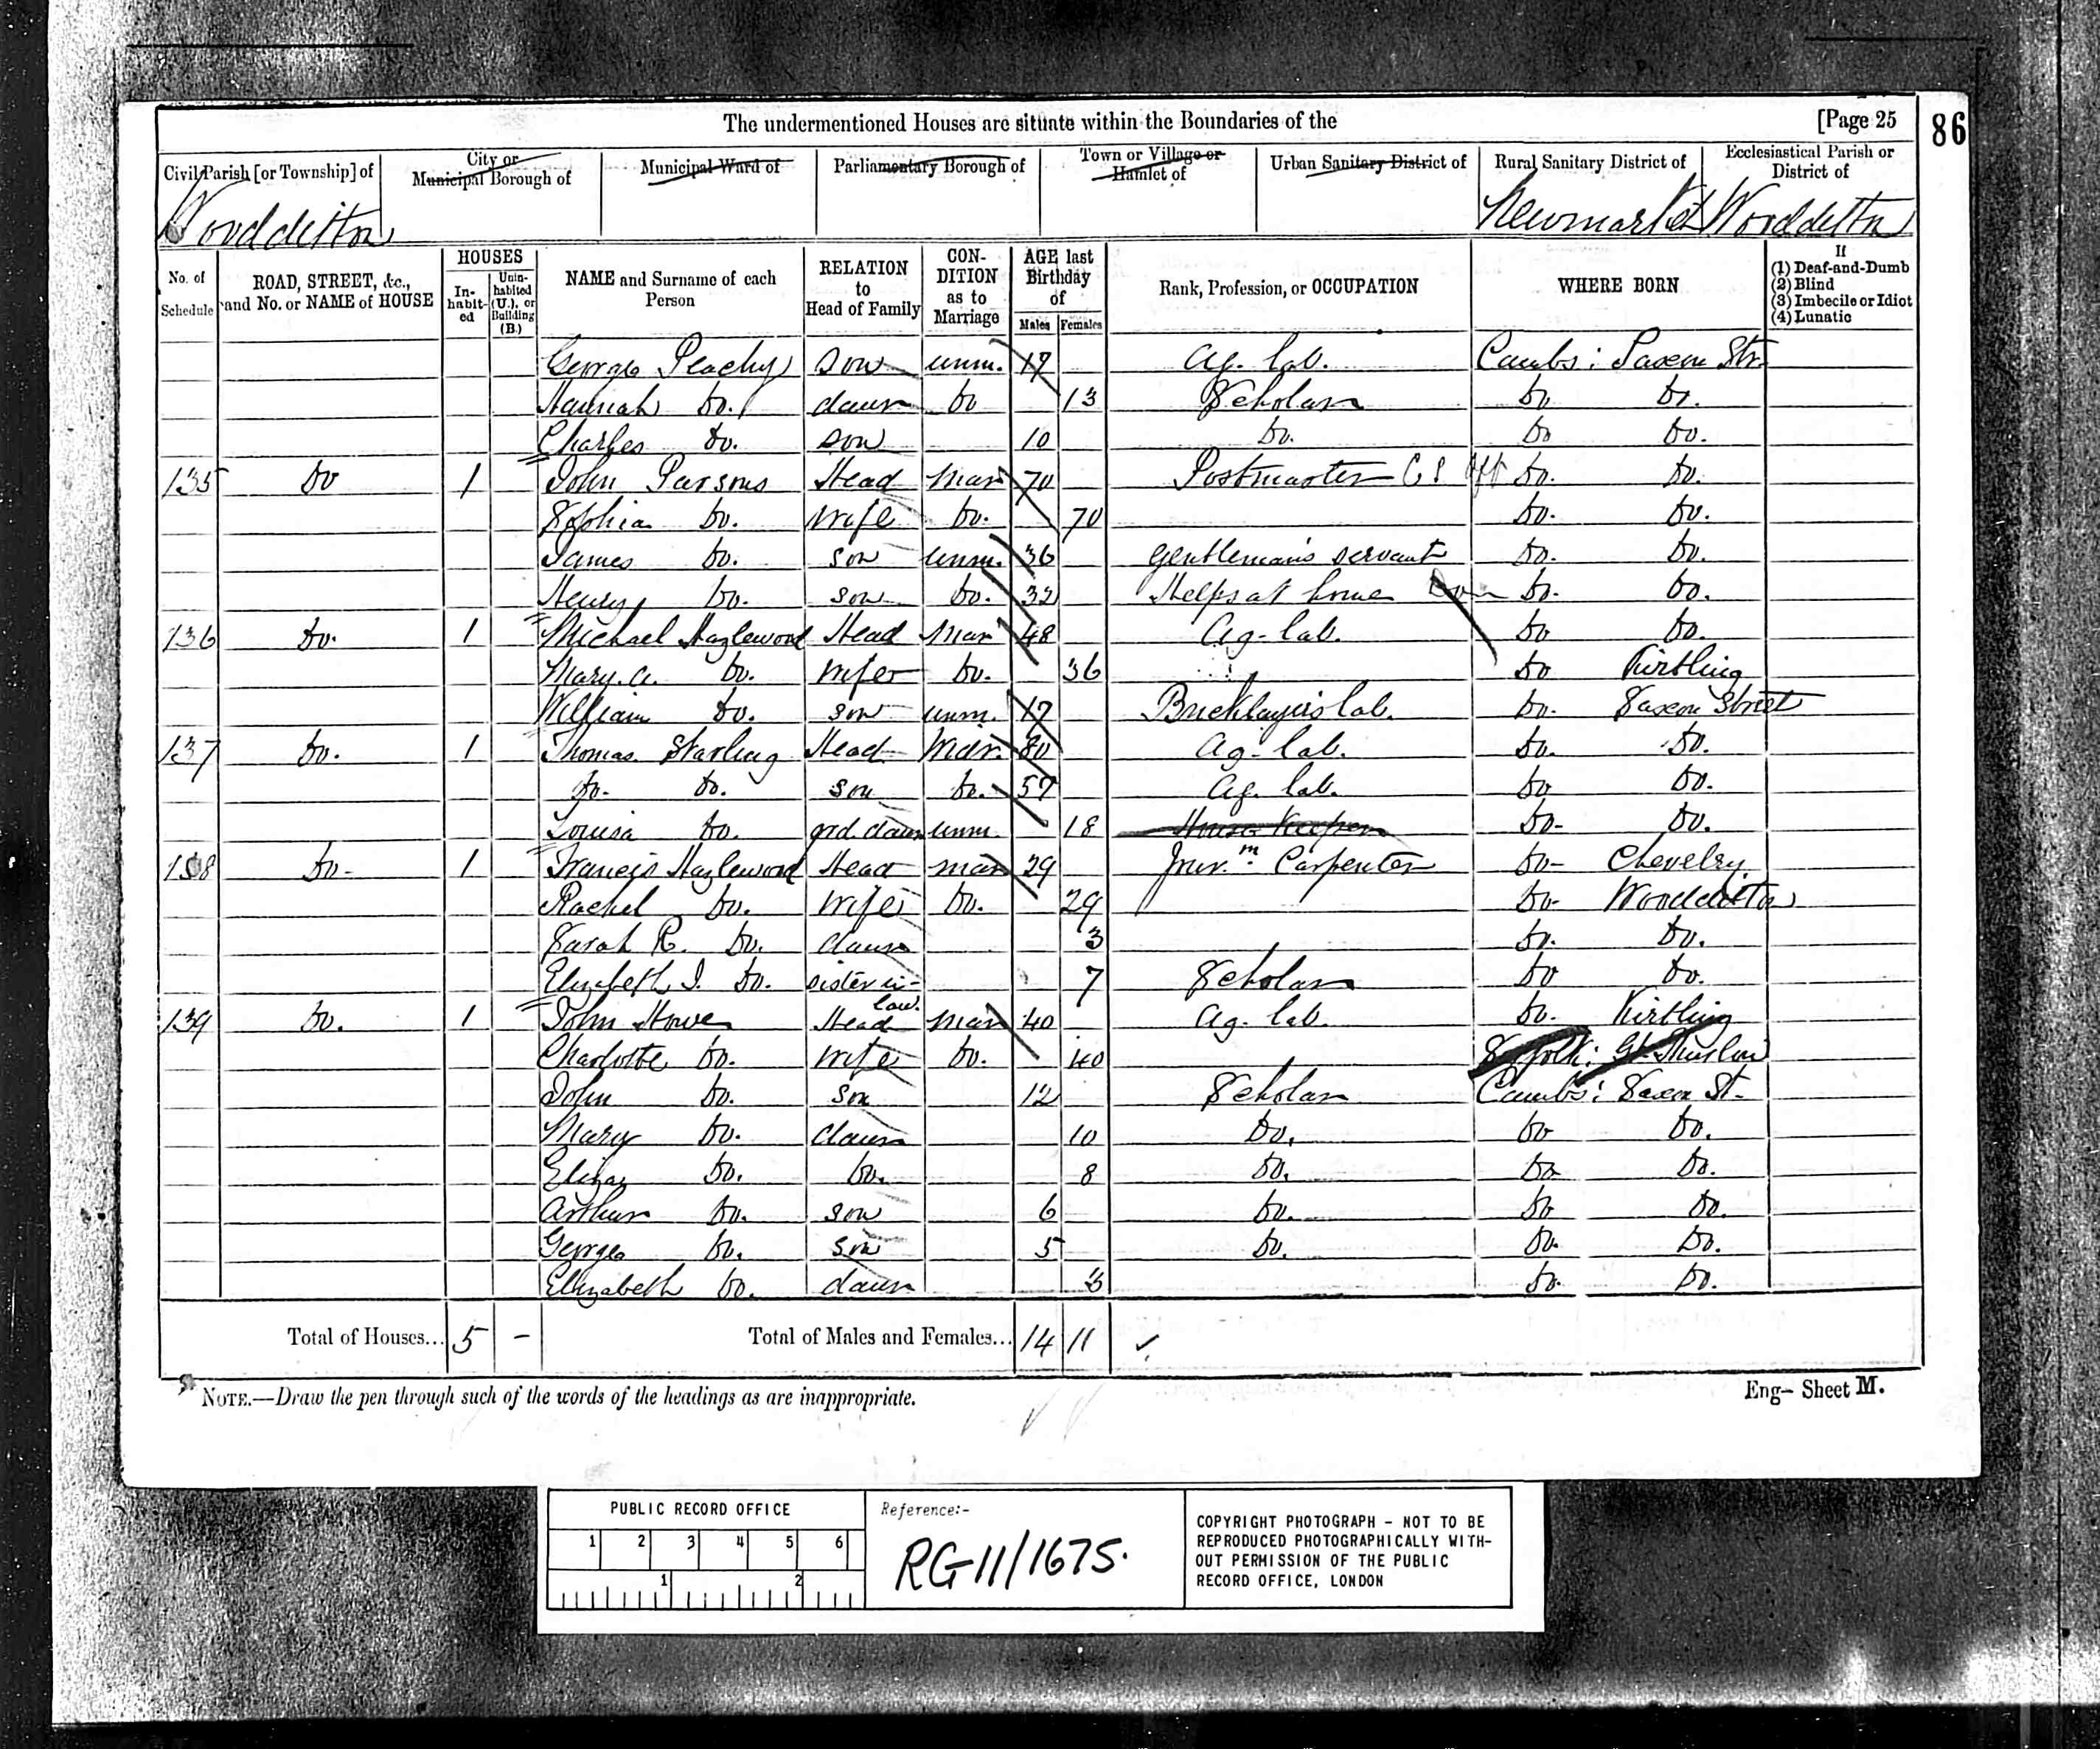 The undermentioned Houses are situate within the Boundaries of the [Page 25 86
Civil Parish [or Township] of City or Municipal Borough of Municipal Ward of Parliamentary Borough of Town or Village or Hamlet of Urban Sanitary District of Rural Sanitary District of Ecclesiastical Parish or District of
Woodditton Newmarket Woodditton
No. of Schedule ROAD, STREET, &c., and No. or NAME of HOUSE HOUSES Inhabited Uninhabited (U.), or Building (B.) NAME and Surname of each Person RELATION to Head of Family CONDITION as to Marriage AGE last Birthday of Males Females Rank, Profession, or OCCUPATION WHERE BORN If (1) Deaf-and-Dumb (2) Blind (3) Imbecile or Idiot (4) Lunatic
George Peachy son unm. 17 Ag. lab. Cambs: Saxon Str.
Hannah do. daur do 13 Scholar do do.
Charles do. son 10 do. do do.
135 do 1 John Parsons Head Mar 70 Postmaster C S Off do. do.
Sophia do. wife do. 70 do. do.
James do. son unm. 36 Gentleman's servant do. do.
Henry do. son do. 32 Helps at home do. do.
136 do. 1 Michael Hazlewood Head Mar 48 Ag. lab. do do.
Mary. A. do. wife do. 36 do Kirtling
William do. son unm. 17 Bricklayer's lab. do. Saxon Street
137 do. 1 Thomas Starling Head Mar. 80 Ag. lab. do. do.
do. do. son do. 57 Ag. lab. do do.
Louisa do. grd. daur unm. 18 House Keeper do. do.
138 do. 1 Francis Hazlewood Head mar 29 Jour.m. Carpenter do. Cheveley
Rachel do. wife do. 29 do. Woodditton
Sarah R. do. daur 3 do. do.
Elizabeth J. do. sister in-law. 7 Scholar do do.
139 do. 1 John Howe Head mar 40 Ag. lab. do. Kirtling
Charlotte do. wife do. 40 Suffolk: Gt. Thurlow
John do. son 12 Scholar Cambs: Saxon St.
Mary do. daur 10 do. do do.
Eliza do. do. 8 do. do do.
Arthur do. son 6 do. do do.
George do. son 5 do. do. do.
Elizabeth do. daur 3 do. do.
Total of Houses... 5 – Total of Males and Females... 14 11
NOTE.—Draw the pen through such of the words of the headings as are inappropriate. Eng– Sheet M.
PUBLIC RECORD OFFICE
1 2 3 4 5 6
1 2
Reference:-
RG 11/1675.
COPYRIGHT PHOTOGRAPH - NOT TO BE
REPRODUCED PHOTOGRAPHICALLY WITH-
OUT PERMISSION OF THE PUBLIC
RECORD OFFICE, LONDON